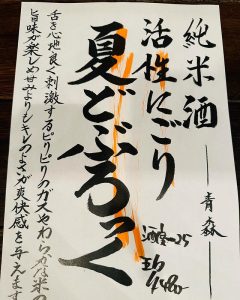 純米酒 —— 青森
活性にごり
夏どぶろっく
酒度-25
舌を心地良く刺激するピリピリのガスやわらかな米の
旨味が楽しめ甘みよりもキレのよさが爽快感を与えます